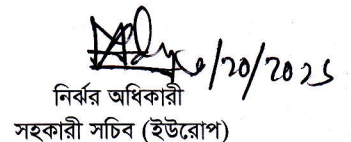 /20/2025
নির্ঝর অধিকারী
সহকারী সচিব (ইউরোপ)